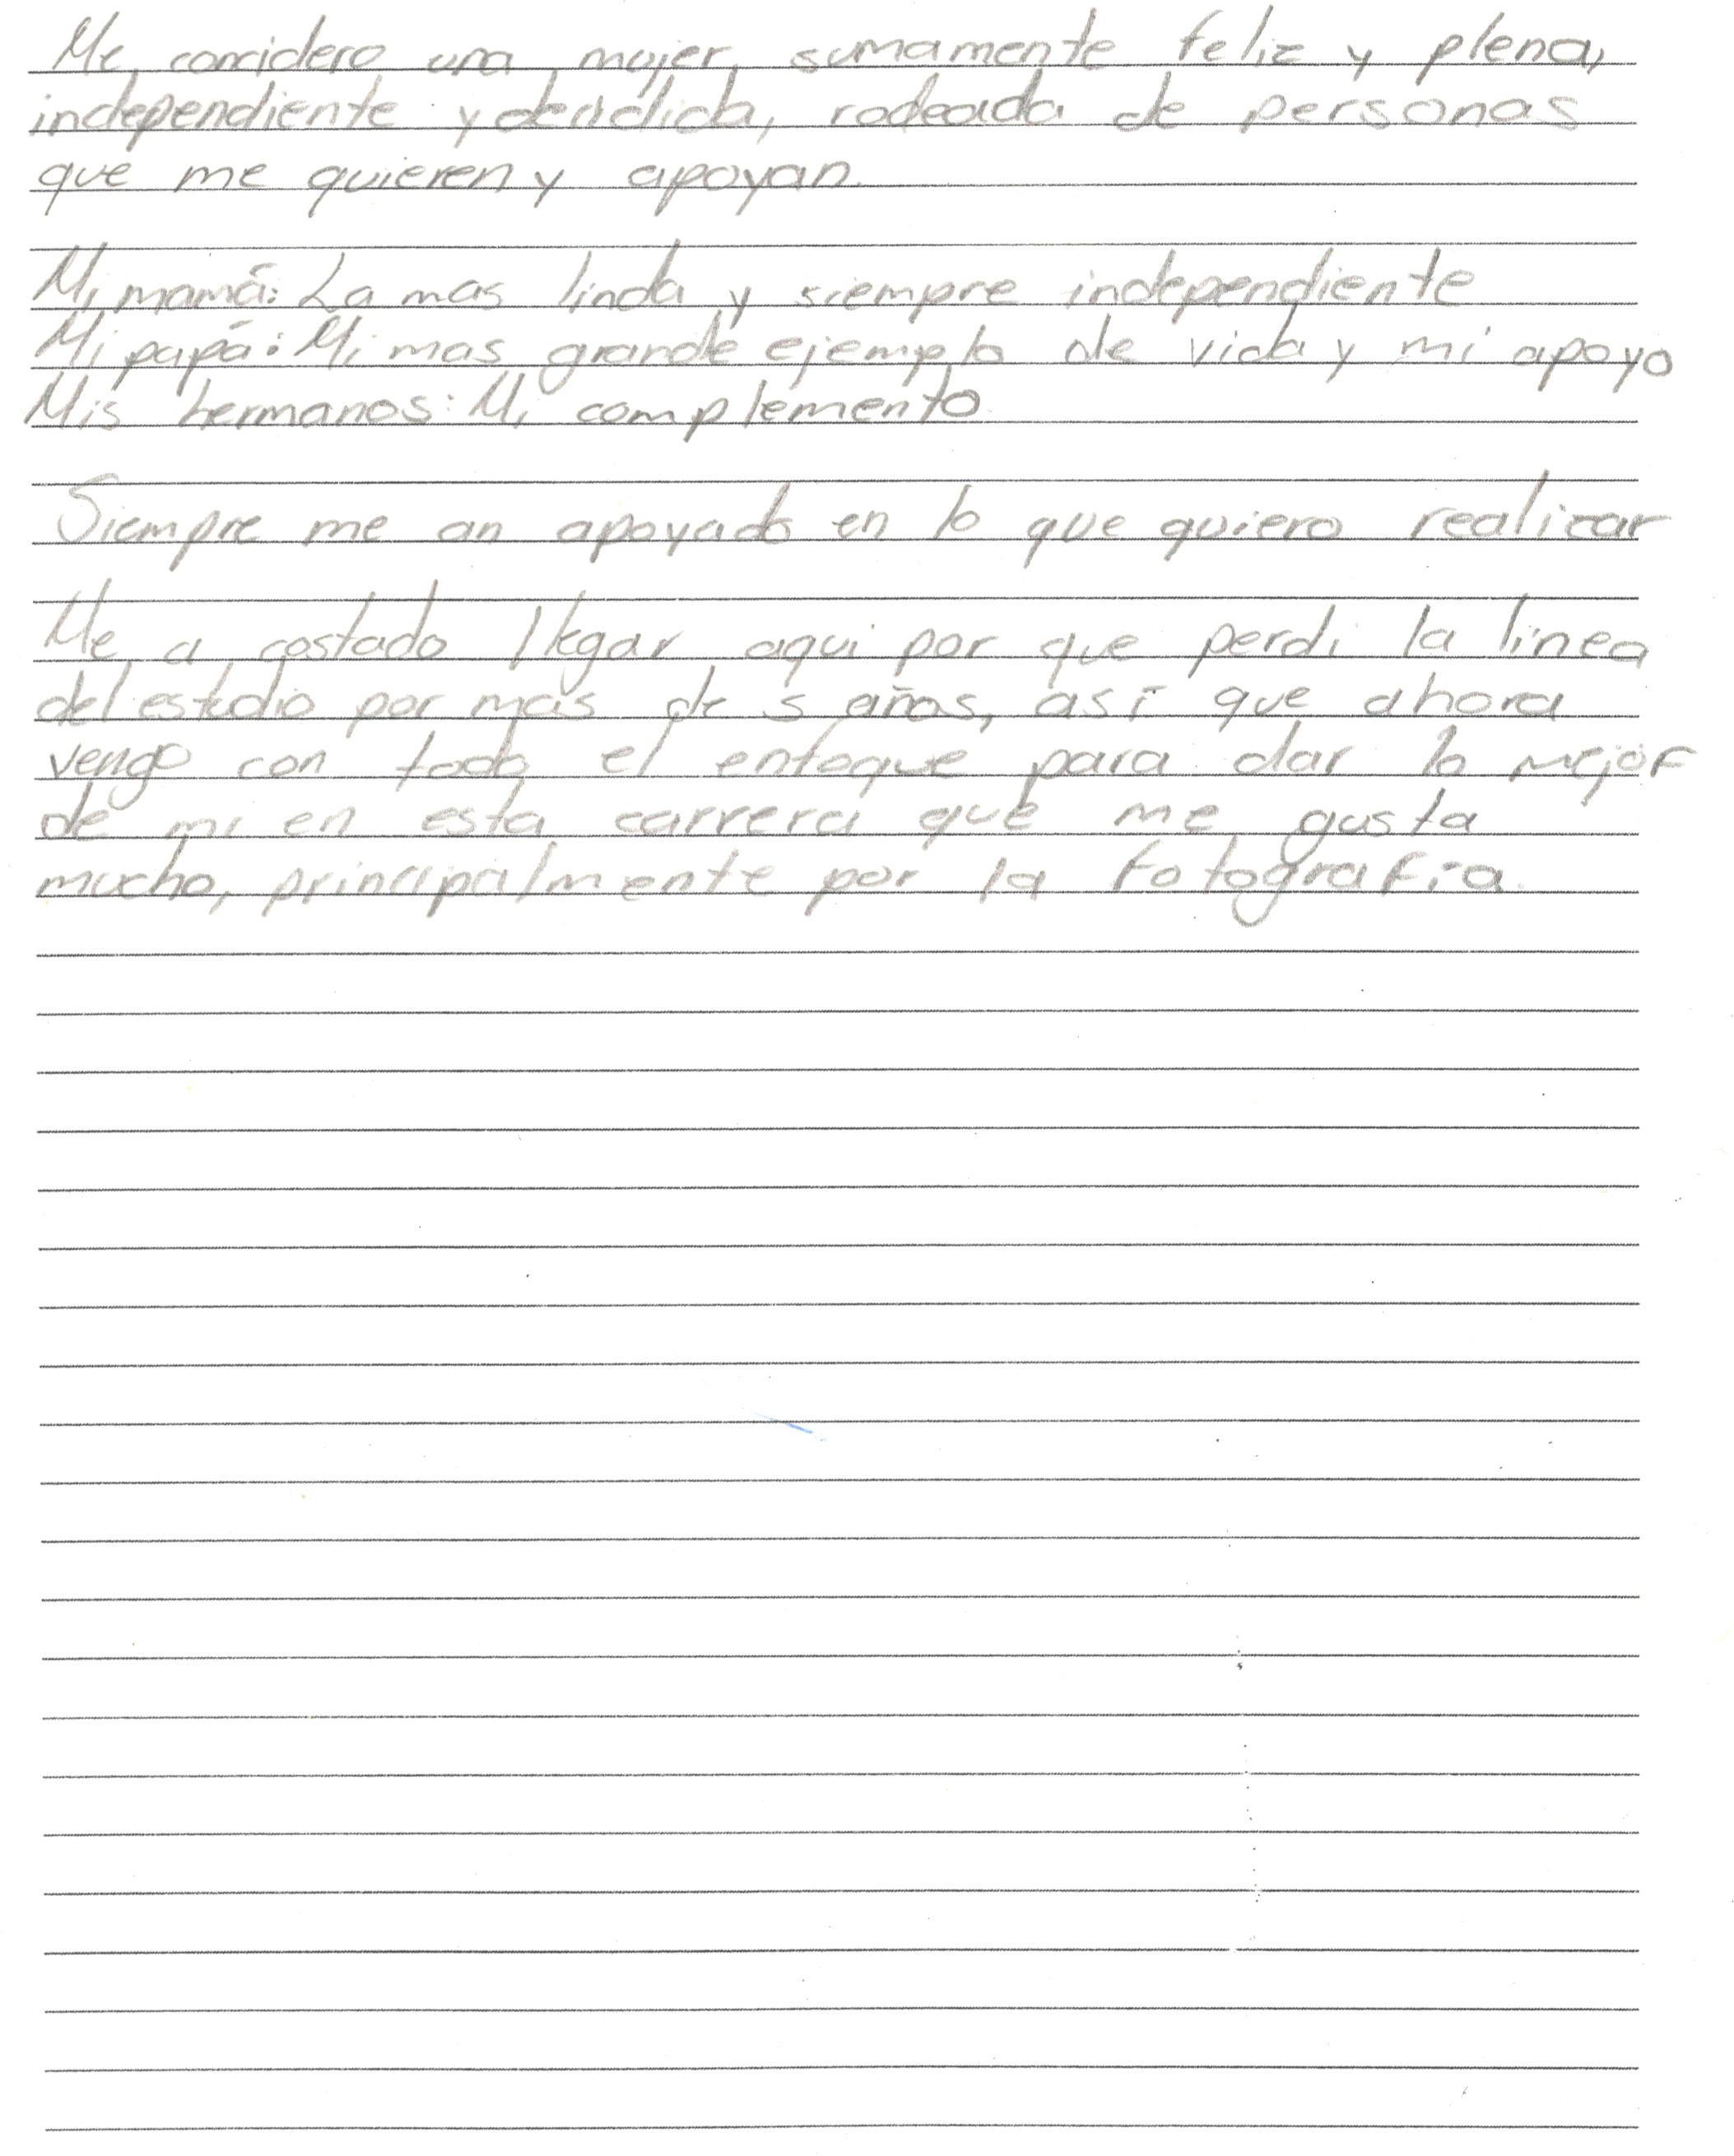 Me concidero una mujer sumamente feliz y plena,
independiente y decidida, rodeada de personas
que me quieren y apoyan.
Mi mamá: La mas linda y siempre independiente
Mi papá: Mi mas grande ejemplo de vida y mi apoyo
Mis hermanos: Mi complemento
Siempre me an apoyado en lo que quiero realizar
Me a costado llegar aqui por que perdi la linea
del estudio por mas de 5 años, así que ahora
vengo con todo el enfoque para dar lo mejor
de mi en esta carrera que me gusta
mucho, principalmente por la fotografía.